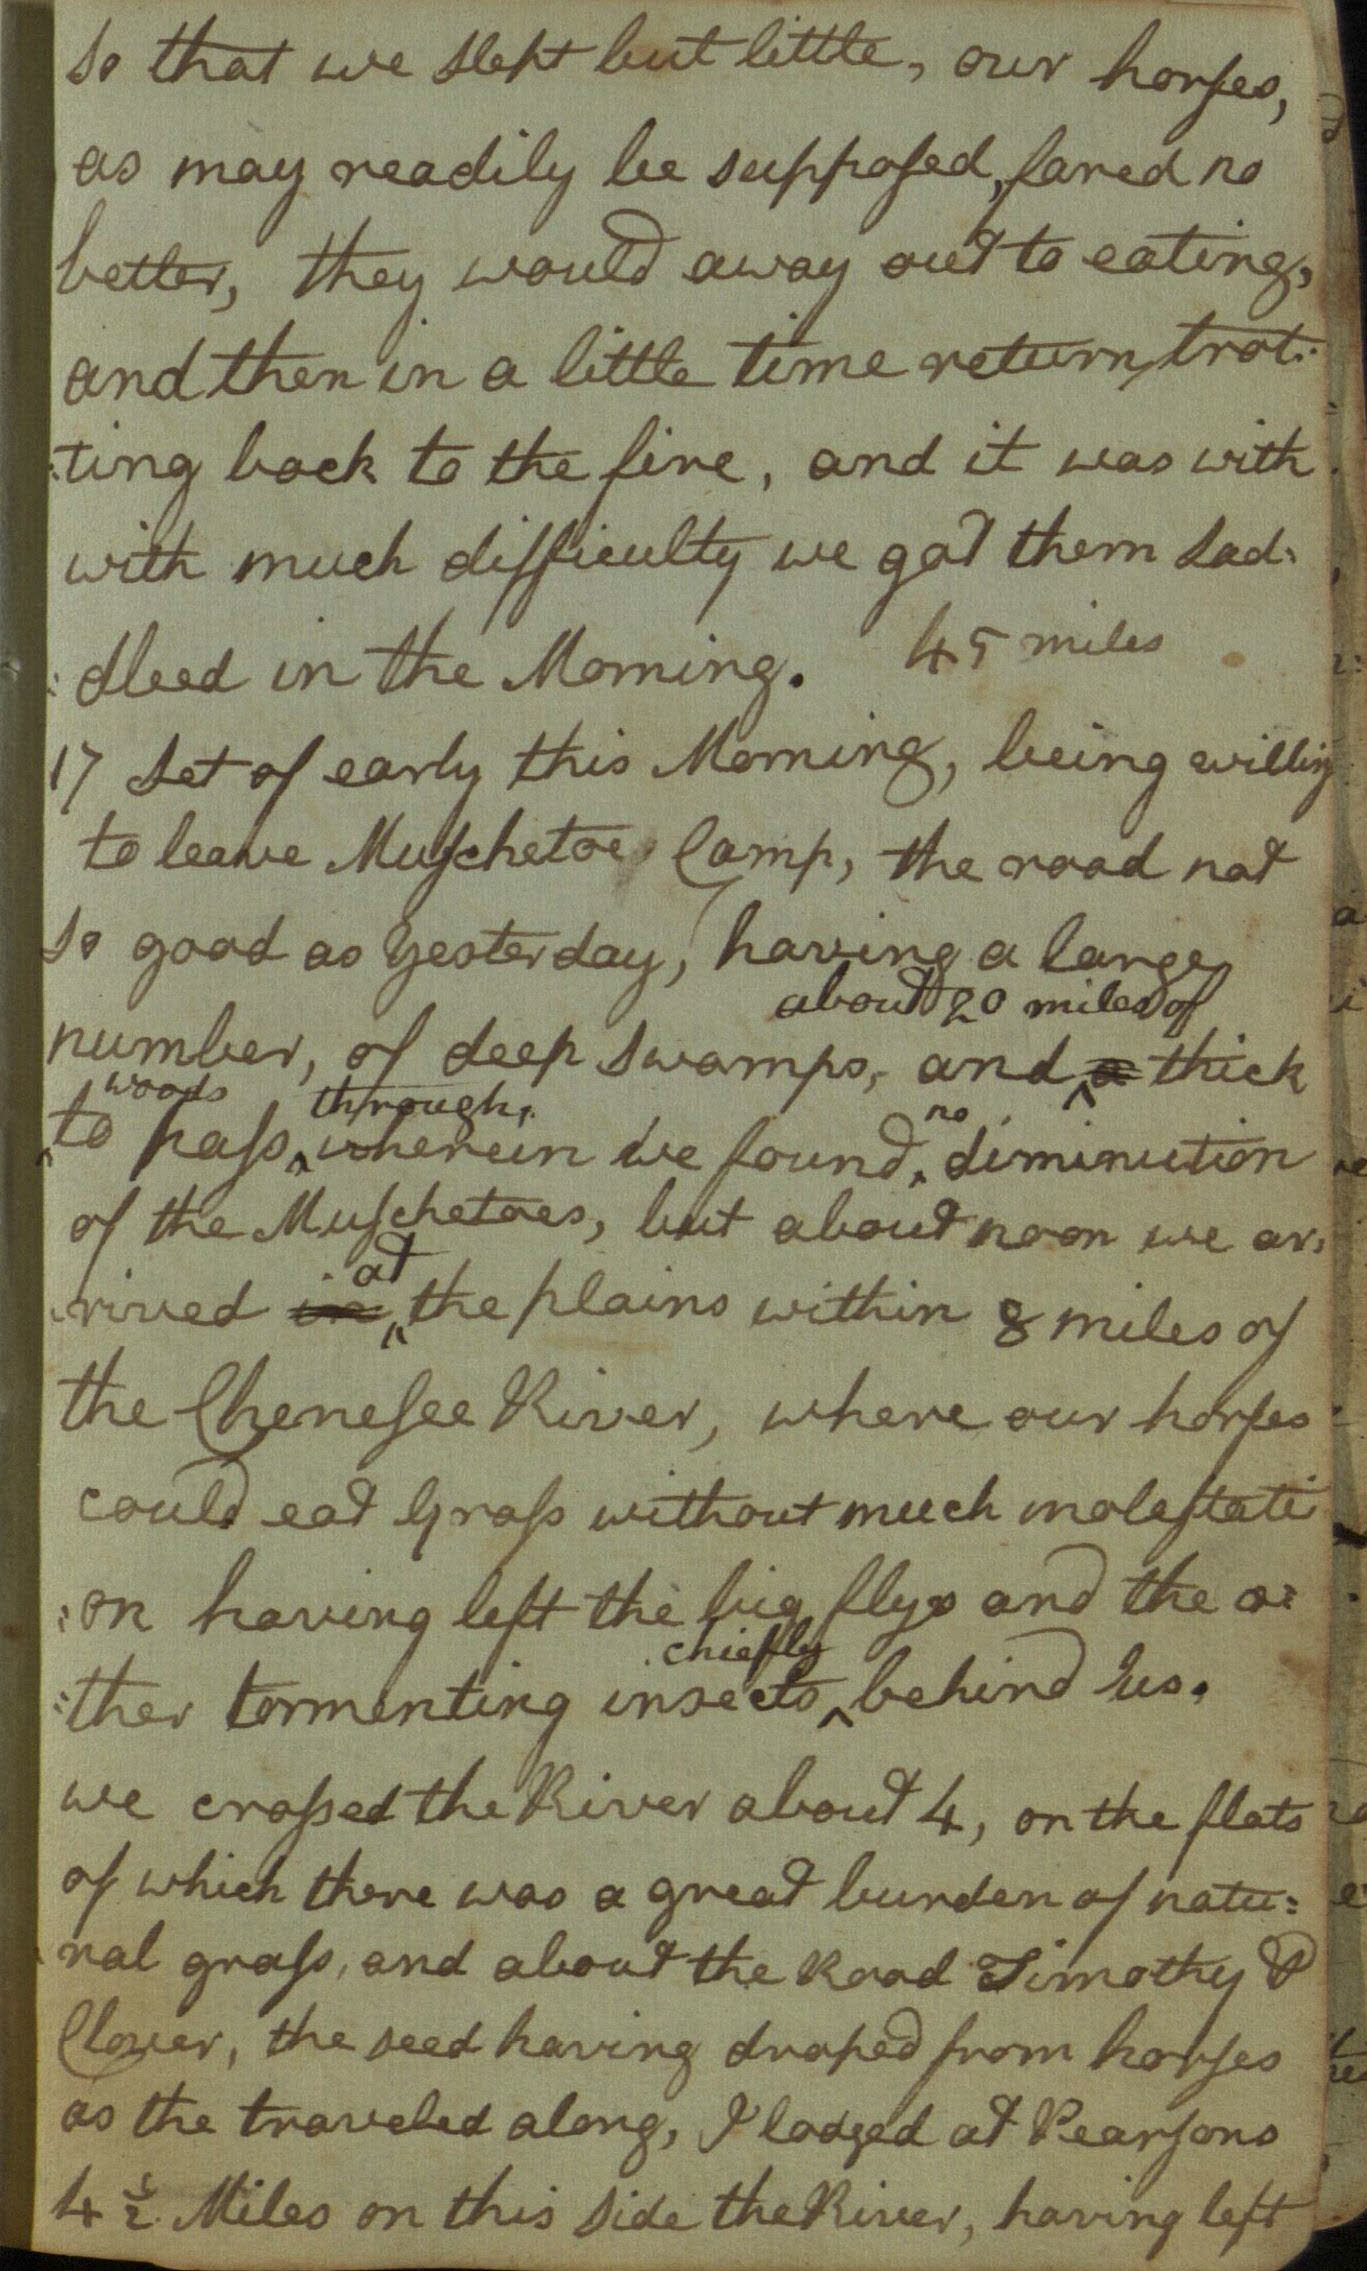 so that we slept but little, our horses,
as may readily be supposed, fared no
better, they would away out to eating,
and then in a little time return, trot:
:ting back to the fire, and it was with
with much difficulty we got them sad:
:dleed in the Morning. 45 miles
17 set of early this Morning, being willing
to leave Muschetoe Camp, the road not
so good as Yesterday, having a large
about 20 miles of
number, of deep swamps, and ^ a thick
woods through,
^ to pass ^ wherein we found ^ no diminution
of the Muschetoes, but about noon we ar:
:rived in ^ at the plains within 8 miles of
the Chenesee River, where our horses
could eat Grass without much molestati
:on having left the big flys and the o:
chiefly
:ther tormenting insects ^ behind Us.
we crossed the River about 4, on the flats
of which there was a great burden of natu:
ral grass, and about the Road Timothy &
Clover, the seed having droped from horses
as the traveled along, I lodged at Pearsons
4 1/2 Miles on this side the River, having left